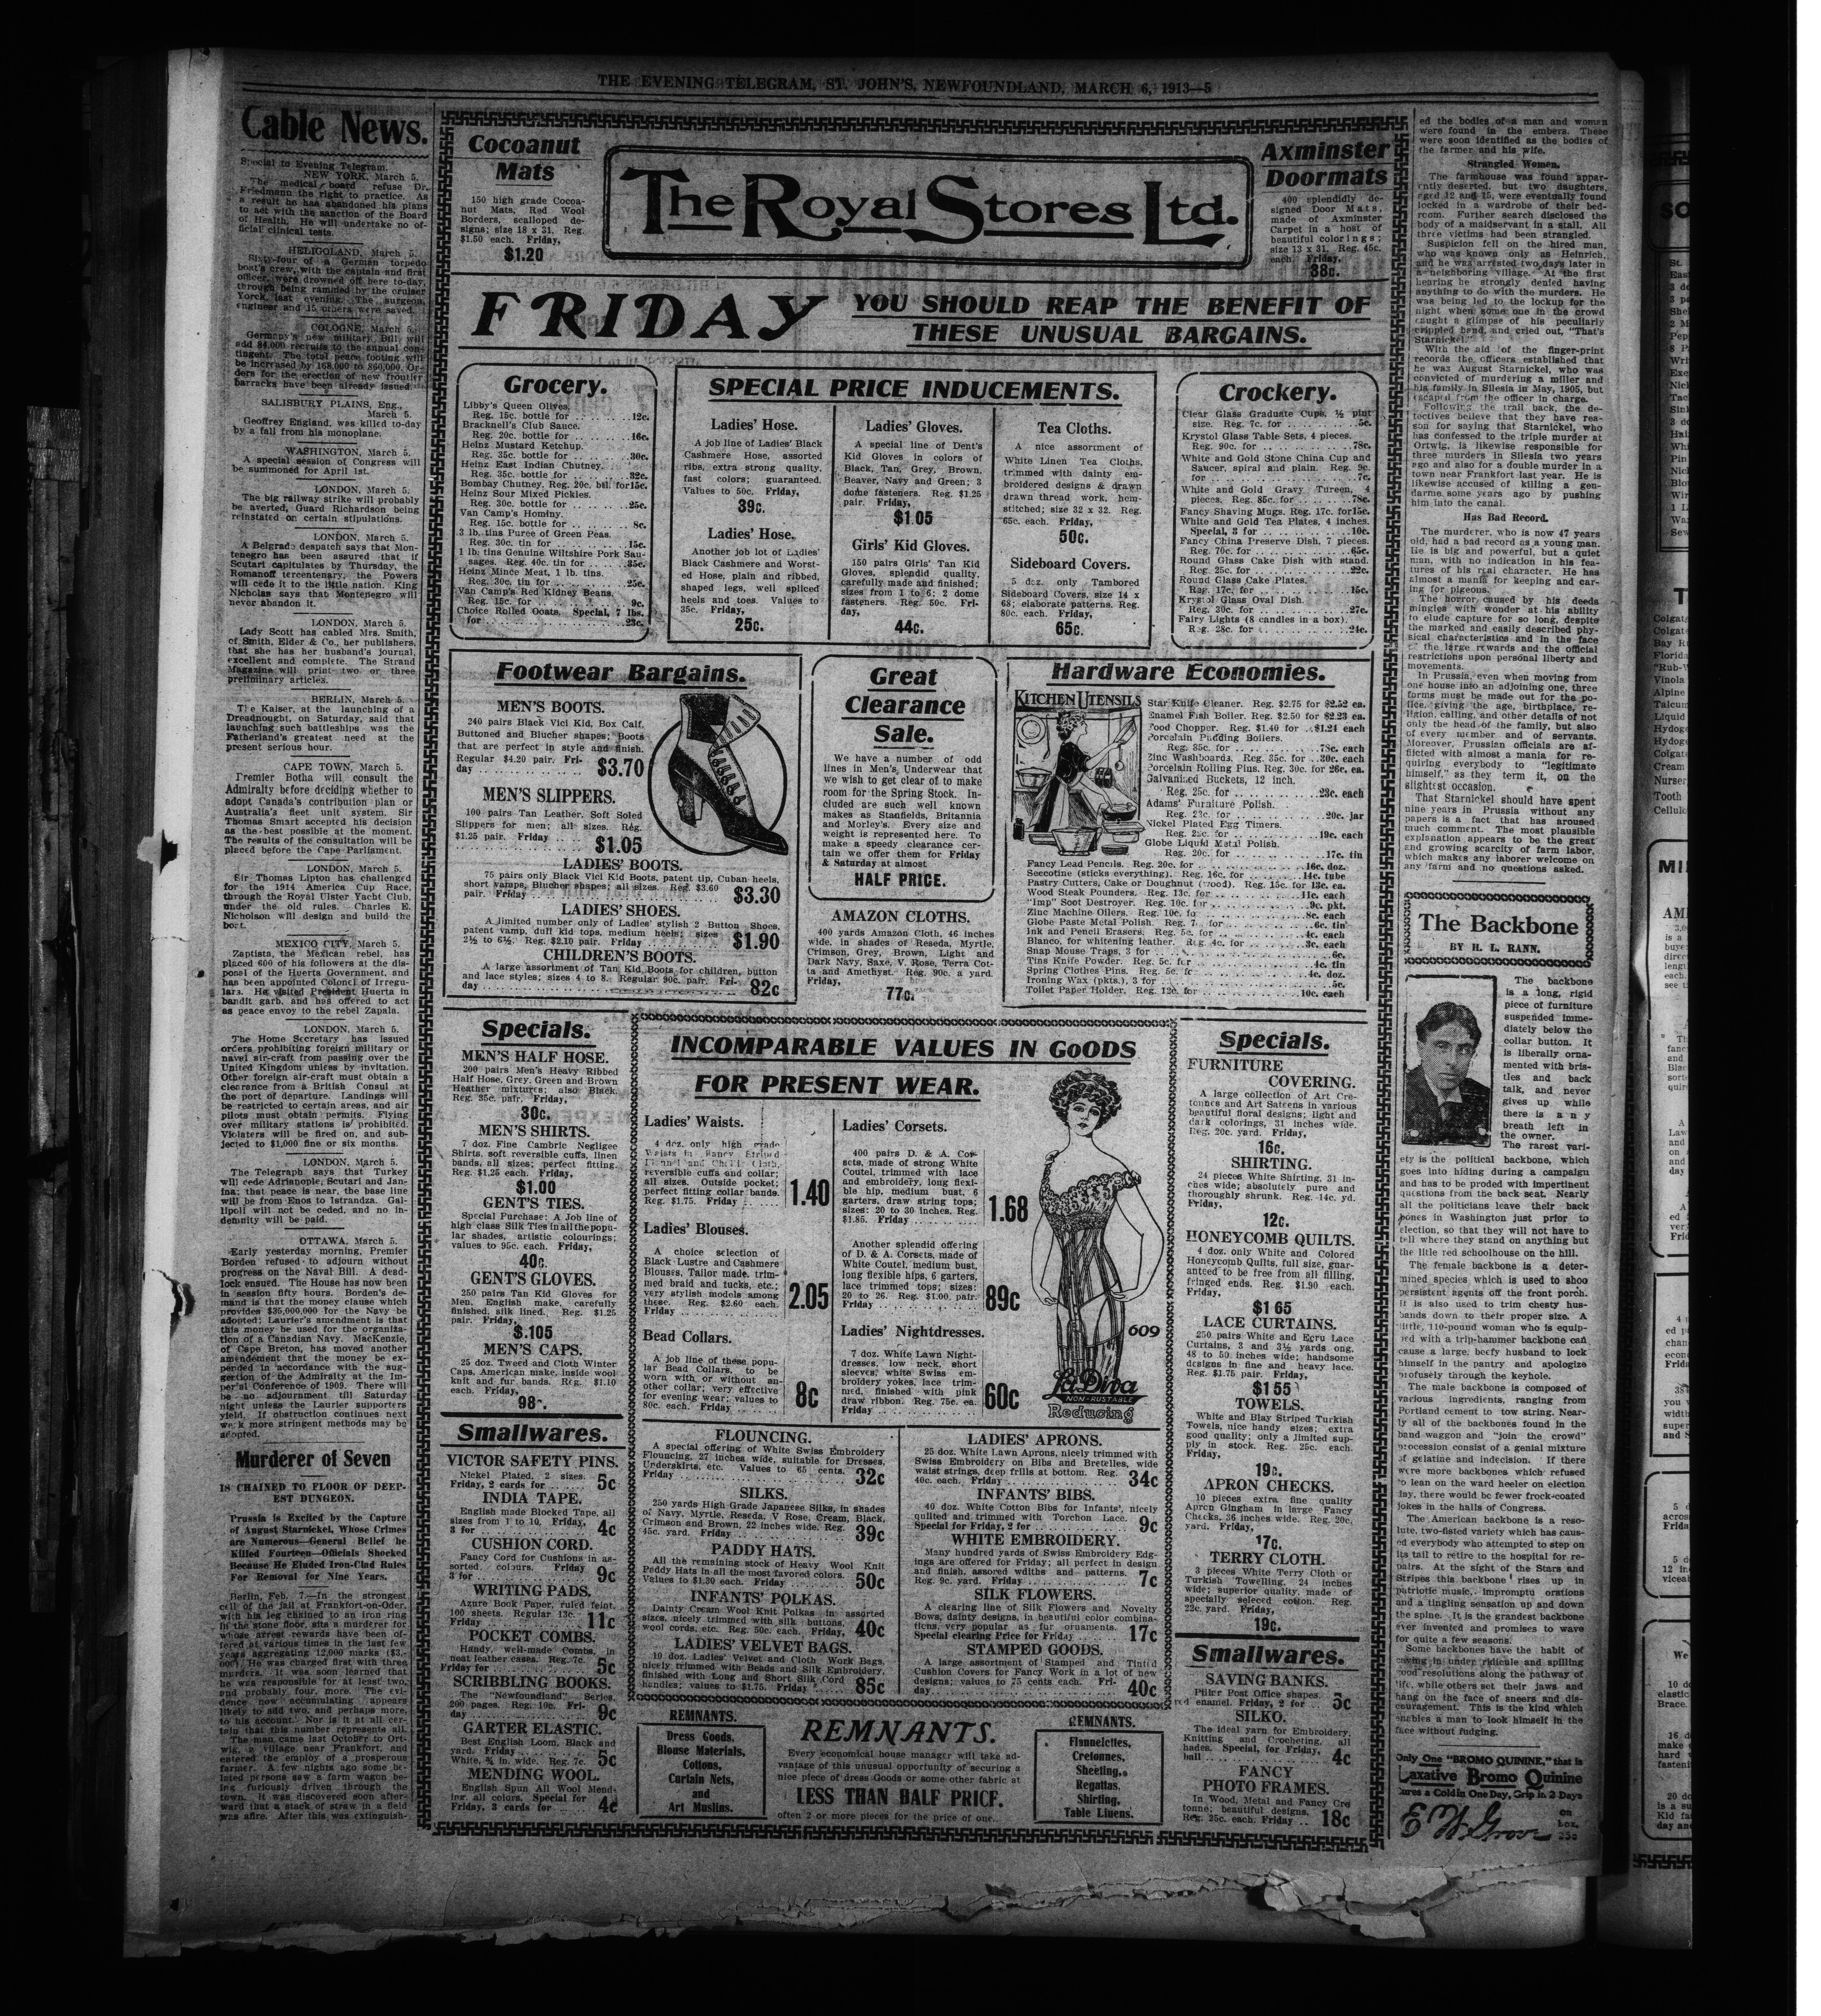 THE EVENING TELEGRAM, ST. JOHN'S, NEWFOUNDLAND, MARCH 6, 1913—5
Cable News.
Special to Evening Telegram.
NEW YORK, March 5.
The medical board refuse Dr.
Friedmann the right to practice. As
a result he has abandoned his plans
to act with the sanction of the Board
of Health. He will undertake no of-
ficial clinical tests.
HELIGOLAND, March 5.
Sixty-four of a German torpedo
boat's crew, with the captain and first
officer, were drowned off here to-day,
through being rammed by the cruiser
Yorck, last evening. The surgeon,
engineer and 15 others were saved.
COLOGNE, March 5.
Germany's new military Bill will
add 84,000 recruits to the annual con-
tingent. The total peace footing will
be increased by 168,000 to 860,000. Or-
ders for the erection of new frontier
barracks have been already issued.
SALISBURY PLAINS, Eng.,
March 5.
Geoffrey England, was killed to-day
by a fall from his monoplane.
WASHINGTON, March 5.
A special session of Congress will
be summoned for April 1st.
LONDON, March 5.
The big railway strike will probably
be averted, Guard Richardson being
reinstated on certain stipulations.
LONDON, March 5.
A Belgrade despatch says that Mon-
tenegro has been assured that if
Scutari capitulates by Thursday, the
Romanoff tercentenary, the Powers
will cede it to the little nation. King
Nicholas says that Montenegro will
never abandon it.
LONDON, March 5.
Lady Scott has cabled Mrs. Smith,
of Smith, Elder & Co., her publishers,
that she has her husband's journal,
excellent and complete. The Strand
Magazine will print two or three
preliminary articles.
BERLIN, March 5.
The Kaiser, at the launching of a
Dreadnought, on Saturday, said that
launching such battleships was the
Fatherland's greatest need at the
present serious hour.
CAPE TOWN, March 5.
Premier Botha will consult the
Admiralty before deciding whether to
adopt Canada's contribution plan or
Australia's fleet unit system. Sir
Thomas Smart accepted his decision
as the best possible at the moment.
The results of the consultation will be
placed before the Cape Parliament.
LONDON, March 5.
Sir Thomas Lipton has challenged
for the 1914 America Cup Race,
through the Royal Ulster Yacht Club,
under the old rules. Charles E.
Nicholson will design and build the
boat.
MEXICO CITY, March 5.
Zaptista, the Mexican rebel, has
placed 600 of his followers at the dis-
posal of the Huerta Government, and
has been appointed Colonel of Irregu-
lars. He visited President Huerta in
bandit garb, and has offered to act
as peace envoy to the rebel Zapala.
LONDON, March 5.
The Home Secretary has issued
orders prohibiting foreign military or
navel air-craft from passing over the
United Kingdom unless by invitation.
Other foreign air-craft must obtain a
clearance from a British Consul at
the port of departure. Landings will
be restricted to certain areas, and air
pilots must obtain permits. Flying
over military stations is prohibited.
Violaters will be fired on, and sub-
jected to $1,000 fine or six months.
LONDON, March 5.
The Telegraph says that Turkey
will cede Adrianople, Scutari and Jan-
ina; that peace is near, the base line
will be from Enos to Istranza. Gal-
lipoli will not be ceded, and no in-
demnity will be paid.
OTTAWA, March 5.
Early yesterday morning, Premier
Borden refused to adjourn without
progress on the Naval Bill. A dead-
lock ensued. The House has now been
in session fifty hours. Borden's de-
mand is that the money clause which
provides $35,000,000 for the Navy be
adopted; Laurier's amendment is that
this money be used for the organiza-
tion of a Canadian Navy. MacKenzie,
of Cape Breton, has moved another
amendement that the money be ex-
pended in accordance with the sug-
gestion of the Admiralty at the Im-
perial Conference of 1909. There will
be no adjournment till Saturday
night unless the Laurier supporters
yield. If obstruction continues next
week more stringent methods may be
adopted.
Murderer of Seven
IS CHAINED TO FLOOR OF DEEP-
EST DUNGEON.
Prussia is Excited by the Capture
of August Starnickel, Whose Crimes
are Numerous—General Belief he
Killed Fourteen—Officials Shocked
Because He Eluded Iron-Clad Rules
For Removal for Nine Years.
Berlin, Feb. 7.—In the strongest
cell of the jail at Frankfort-on-Oder,
with his leg chained to an iron ring
in the stone floor, sits a murderer for
whose arrest rewards have been of-
fered at various times in the last few
years aggregating 12,000 marks ($3,-
000). He was charged first with three
murders. It was soon learned that
he was responsible for at least two,
and probably four, more. The evi-
dence now accumulating appears
likely to add two, and perhaps more,
to his account. Nor is it at all cer-
tain that this number represents all.
The man came last October to Ort-
wig, a village near Frankfort, and
entered the employ of a prosperous
farmer. A few nights ago some be-
lated persons saw a farm wagon be-
ing furiously driven through the
town. It was discovered soon after-
ward that a stack of straw in a field
was afire. After this was extinguish-
Cocoanut
Mats
150 high grade Cocoa-
nut Mats, Red Wool
Borders, scalloped de-
signs; size 18 x 31. Reg.
$1.50 each. Friday,
$1.20
The Royal Stores Ltd.
Axminster
Doormats
400 splendidly de-
signed Door Mats,
made of Axminster
Carpet in a host of
beautiful colorings;
size 13 x 31. Reg. 45c.
each. Friday,
38c.
FRIDAY
YOU SHOULD REAP THE BENEFIT OF
THESE UNUSUAL BARGAINS.
Grocery.
Libby's Queen Olives.
Reg. 15c. bottle for 12c.
Bracknell's Club Sauce.
Reg. 20c. bottle for 16c.
Heinz Mustard Ketchup.
Reg. 35c. bottle for 30c.
Heinz East Indian Chutney.
Reg. 35c. bottle for 32c.
Bombay Chutney. Reg. 20c. btl. for 15c.
Heinz Sour Mixed Pickles.
Reg. 30c. bottle for 25c.
Van Camp's Hominy.
Reg. 15c. bottle for 8c.
3 lb. tins Puree of Green Peas.
Reg. 30c. tin for 15c.
1 lb. tins Genuine Wiltshire Pork Sau-
sages. Reg. 40c. tin for 35c.
Heinz Mince Meat, 1 lb. tins.
Reg. 30c. tin for 25c.
Van Camp's Red Kidney Beans.
Reg. 15c. for 9c.
Choice Rolled Ooats. Special, 7 lbs.
for 23c.
SPECIAL PRICE INDUCEMENTS.
Ladies' Hose.
A job line of Ladies' Black
Cashmere Hose, assorted
ribs, extra strong quality,
fast colors; guaranteed.
Values to 50c. Friday,
39c.
Ladies' Hose.
Another job lot of Ladies'
Black Cashmere and Worst-
ed Hose, plain and ribbed,
shaped legs, well spliced
heels and toes. Values to
35c. Friday,
25c.
Ladies' Gloves.
A special line of Dent's
Kid Gloves in colors of
Black, Tan, Grey, Brown,
Beaver, Navy and Green; 3
dome fasteners. Reg. $1.25
pair. Friday,
$1.05
Girls' Kid Gloves.
150 pairs Girls' Tan Kid
Gloves, splendid quality,
carefully made and finished;
sizes from 1 to 6; 2 dome
fasteners. Reg. 50c. Fri-
day,
44c.
Tea Cloths.
A nice assortment of
White Linen Tea Cloths,
trimmed with dainty em-
broidered designs & drawn
drawn thread work, hem-
stitched; size 32 x 32. Reg.
65c. each. Friday,
50c.
Sideboard Covers.
5 doz. only Tambored
Sideboard Covers, size 14 x
68; elaborate patterns. Reg.
80c. each. Friday,
65c.
Crockery.
Clear Glass Graduate Cups, ½ pint
size. Reg. 7c. for 5c.
Krystol Glass Table Sets, 4 pieces.
Reg. 90c. for 78c.
White and Gold Stone China Cup and
Saucer, spiral and plain. Reg. 9c.
for 7c.
White and Gold Gravy Tureen, 4
pieces. Reg. 85c. for 78c.
Fancy Shaving Mugs. Reg. 17c. for 15c.
White and Gold Tea Plates, 4 inches.
Special, 3 for 10c.
Fancy China Preserve Dish, 7 pieces.
Reg. 70c. for 65c.
Round Glass Cake Dish with stand.
Reg. 25c. for 22c.
Round Glass Cake Plates.
Reg. 17c. for 15c.
Krystol Glass Oval Dish.
Reg. 30c. for 27c.
Fairy Lights (8 candles in a box).
Reg. 28c. for 24c.
Footwear Bargains.
MEN'S BOOTS.
240 pairs Black Vici Kid, Box Calf,
Buttoned and Blucher shapes; Boots
that are perfect in style and finish.
Regular $4.20 pair. Fri-
day $3.70
MEN'S SLIPPERS.
100 pairs Tan Leather, Soft Soled
Slippers for men; all sizes. Reg.
$1.25 pair. Friday $1.05
LADIES' BOOTS.
75 pairs only Black Vici Kid Boots, patent tip, Cuban heels,
short vamps, Blucher shapes; all sizes. Reg. $3.60
pair. Friday $3.30
LADIES' SHOES.
A limited number only of Ladies' stylish 2 Button Shoes,
patent vamp, dull kid tops, medium heels; sizes
2½ to 6½. Reg. $2.10 pair. Friday $1.90
CHILDREN'S BOOTS.
A large assortment of Tan Kid Boots for children, button
and lace styles; sizes 4 to 8. Regular 90c. pair. Fri-
day 82c
Great
Clearance
Sale.
We have a number of odd
lines in Men's Underwear that
we wish to get clear of to make
room for the Spring Stock. In-
cluded are such well known
makes as Stanfields, Britannia
and Morley's. Every size and
weight is represented here. To
make a speedy clearance cer-
tain we offer them for Friday
& Saturday at almost
HALF PRICE.
AMAZON CLOTHS.
400 yards Amazon Cloth, 46 inches
wide, in shades of Reseda, Myrtle,
Crimson, Grey, Brown, Light and
Dark Navy, Saxe, V. Rose, Terra Cot-
ta and Amethyst. Reg. 90c. a yard.
Friday,
77c.
Hardware Economies.
KITCHEN UTENSILS
Star Knife Cleaner. Reg. $2.75 for $2.52 ea.
Enamel Fish Boiler. Reg. $2.50 for $2.23 ea.
Food Chopper. Reg. $1.40 for $1.24 each
Porcelain Pudding Boilers.
Reg. 85c. for 78c. each
Zinc Washboards. Reg. 35c. for 30c. each
Porcelain Rolling Pins. Reg. 30c. for 26c. ea.
Galvanized Buckets, 12 inch.
Reg. 25c. for 23c. each
Adams' Furniture Polish.
Reg. 23c. for 20c. jar
Nickel Plated Egg Timers.
Reg. 22c. for 19c. each
Globe Liquid Metal Polish.
Reg. 20c. for 17c. tin
Fancy Lead Pencils. Reg. 20c. for 16c. doz.
Seccotine (sticks everything). Reg. 16c. for 14c. tube
Pastry Cutters, Cake or Doughnut (wood). Reg. 15c. for 13c. ea.
Wood Steak Pounders. Reg. 13c. for 11c. each
"Imp" Soot Destroyer. Reg. 10c. for 9c. pkt.
Zinc Machine Oilers. Reg. 10c. fo 8c. each
Globe Paste Metal Polish. Reg. 7. for 6c. tin
Ink and Pencil Erasers. Reg. 5c. for 4c. each
Blanco, for whitening leather. Reg. 4c. for 3c. each
Snap Mouse Traps, 3 for 6c.
Tins Knife Powder. Reg. 5c. for 4c. tin
Spring Clothes Pins. Reg. 5c. fo 4c. doz.
Ironing Wax (pkts.), 3 for 5c.
Toilet Paper Holder. Reg. 12c. for 10c. each
Specials.
MEN'S HALF HOSE.
200 pairs Men's Heavy Ribbed
Half Hose, Grey, Green and Brown
Heather mixtures; also Black.
Reg. 35c. pair. Friday,
30c.
MEN'S SHIRTS.
7 doz. Fine Cambric Negligee
Shirts, soft reversible cuffs, linen
bands, all sizes; perfect fitting.
Reg. $1.25 each. Friday,
$1.00
GENT'S TIES.
Special Purchase: A Job line of
high class Silk Ties in all the popu-
lar shades, artistic colourings;
values to 95c. each. Friday,
40c.
GENT'S GLOVES.
250 pairs Tan Kid Gloves for
Men, English make, carefully
finished, silk lined. Reg. $1.25
pair. Friday,
$.105
MEN'S CAPS.
25 doz. Tweed and Cloth Winter
Caps, American make, inside wool
knit and fur bands. Reg. $1.10
each. Friday,
98
Smallwares.
VICTOR SAFETY PINS.
Nickel Plated, 2 sizes.
Friday, 2 cards for 5c
INDIA TAPE.
English made Blocked Tape, all
sizes from 1 to 10. Friday,
3 for 4c
CUSHION CORD.
Fancy Cord for Cushions in as-
sorted colours. Friday
3 for 9c
WRITING PADS.
Azure Book Paper, ruled feint,
100 sheets. Regular 13c.
Friday 11c
POCKET COMBS.
Handy, well-made Combs, in
neat leather cases. Reg. 7c.
Friday for 5c
SCRIBBLING BOOKS.
The "Newfoundland" Series,
200 pages. Reg. 10c. Fri-
day 9c
GARTER ELASTIC.
Best English Loom, Black and
yard. Friday
White, ¾ in. wide. Reg. 7c. 5c
MENDING WOOL.
English Spun All Wool Mend-
ing, all colors. Special for
Friday, 3 cards for 4c
INCOMPARABLE VALUES IN GOODS
FOR PRESENT WEAR.
Ladies' Waists.
4 doz. only high grade
Waists in Fancy Striped
Flannel and Challi Cloth,
reversible cuffs and collar;
all sizes. Outside pocket;
perfect fitting collar bands.
Reg. $1.75. Friday 1.40
Ladies' Blouses.
A choice selection of
Black Lustre and Cashmere
Blouses, Tailor made, trim-
med braid and tucks, etc.;
very stylish models among
these. Reg. $2.60 each.
Friday 2.05
Bead Collars.
A job line of these popu-
lar Bead Collars, to be
worn with or without an-
other collar; very effective
for evening wear; values to
80c. each. Friday 8c
Ladies' Corsets.
400 pairs D. & A. Cor-
sets, made of strong White
Coutel, trimmed with lace
and embroidery, long flexi-
ble hip, medium bust, 6
garters, draw string tops;
sizes: 20 to 30 inches. Reg.
$1.85. Friday 1.68
Another splendid offering
of D. & A. Corsets, made of
White Coutel, medium bust,
long flexible hips, 6 garters,
lace trimmed tops; sizes:
20 to 26. Reg. $1.00. pair.
Friday 89c
Ladies' Nightdresses.
7 doz. White Lawn Night-
dresses, low neck, short
sleeves, white Swiss em-
broidery yokes, lace trim-
med, finished with pink
draw ribbon. Reg. 75c. ea.
Friday 60c
609
La Diva
NON-RUSTABLE
Reducing
FLOUNCING.
A special offering of White Swiss Embroidery
Flouncing, 27 inches wide, suitable for Dresses,
Underskirts, etc. Values to 65 cents.
Friday 32c
SILKS.
250 yards High Grade Japanese Silks, in shades
of Navy, Myrtle, Reseda, V Rose, Cream, Black,
Crimson and Brown, 22 inches wide. Reg.
45c. yard. Friday 39c
PADDY HATS.
All the remaining stock of Heavy Wool Knit
Peddy Hats in all the most favored colors.
Values to $1.30 each. Friday 50c
INFANTS' POLKAS.
Dainty Cream Wool Knit Polkas in assorted
sizes, nicely trimmed with silk buttons,
wool cords, etc. Reg. 50c. each. Friday, 40c
LADIES' VELVET BAGS.
10 doz. Ladies' Velvet and Cloth Work Bags,
nicely trimmed with Beads and Silk Embroidery,
finished with Long and Short Silk Cord
handles; values to $1.75. Friday 85c
LADIES' APRONS.
25 doz. White Lawn Aprons, nicely trimmed with
Swiss Embroidery on Bibs and Bretelles, wide
waist strings, deep frills at bottom. Reg.
40c. each. Friday 34c
INFANTS' BIBS.
40 doz. White Cotton Bibs for Infants', nicely
quilted and trimmed with Torchon Lace.
Special for Friday, 2 for 9c
WHITE EMBROIDERY.
Many hundred yards of Swiss Embroidery Edg-
ings are offered for Friday; all perfect in design
and finish, assored widths and patterns.
Reg. 9c. yard. Friday 7c
SILK FLOWERS.
A clearing line of Silk Flowers and Novelty
Bows, dainty designs, in beautiful color combina-
tions, very popular as fur ornaments.
Special clearing Price for Friday 17c
STAMPED GOODS.
A large assortment of Stamped and Tinted
Cushion Covers for Fancy Work in a lot of new
designs; values to 75 cents each. Fri-
day 40c
Specials.
FURNITURE
COVERING.
A large collection of Art Cre-
tonnes and Art Sateens in various
beautiful floral designs; light and
dark colorings, 31 inches wide.
Reg. 20c. yard. Friday,
16c.
SHIRTING.
24 pieces White Shirting, 31 in-
ches wide; absolutely pure and
thoroughly shrunk. Reg. 14c. yd.
Friday,
12c.
HONEYCOMB QUILTS.
4 doz. only White and Colored
Honeycomb Quilts, full size, guar-
anteed to be free from all filling,
fringed ends. Reg. $1.90 each.
Friday,
$1 65
LACE CURTAINS.
250 pairs White and Ecru Lace
Curtains, 3 and 3½ yards ong,
48 to 50 inches wide; handsome
designs in fine and heavy lace.
Reg. $1.75 pair. Friday,
$1 55
TOWELS.
White and Blay Striped Turkish
Towels, nice handy sizes; extra
good quality; only a limited sup-
ply in stock. Reg. 25c. each.
Friday,
19c.
APRON CHECKS.
10 pieces extra fine quality
Apron Gingham in large Fancy
Checks, 36 inches wide. Reg. 20c.
yard. Friday,
17c.
TERRY CLOTH.
3 pieces White Terry Cloth or
Turkish Towelling, 24 inches
wide; superior quality, made of
specially seleced cotton. Reg.
22c. yard. Friday,
19c.
Smallwares.
SAVING BANKS.
Piller Post Office shapes.
red enamel. Friday, 2 for 5c
SILKO.
The ideal yarn for Embroidery,
Knitting and Crocheting, all
hades. Special, for Friday,
ball 4c
FANCY
PHOTO FRAMES.
In Wood, Metal and Fancy Cre
tonne; beautiful designs.
Reg. 25c. each. Friday 18c
REMNANTS.
Dress Goods,
Blouse Materials,
Cottons,
Curtain Nets,
and
Art Muslins.
REMNANTS.
Every economical house manager will take ad-
vantage of this unusual opportunity of securing a
nice piece of dress Goods or some other fabric at
LESS THAN HALF PRICE.
often 2 or more pieces for the price of one.
REMNANTS.
Flannelettes,
Cretonnes,
Sheeting,
Regattas,
Shirting,
Table Linens.
ed the bodies of a man and woman
were found in the embers. These
were soon identified as the bodies of
the farmer and his wife.
Strangled Women.
The farmhouse was found appar-
ently deserted, but two daughters,
aged 12 and 15, were eventually found
locked in a wardrobe of their bed-
room. Further search disclosed the
body of a maidservant in a stall. All
three victims had been strangled.
Suspicion fell on the hired man,
who was known only as Heinrich,
and he was arrested two days later in
a neighboring village. At the first
hearing he strongly denied having
anything to do with the murders. He
was being led to the lockup for the
night when some one in the crowd
caught a glimpse of his peculiarly
crippled hand, and cried out, "That's
Starnickel."
With the aid of the finger-print
records the officers established that
he was August Starnickel, who was
convicted of murdering a miller and
his family in Silesia in May, 1905, but
escaped from the officer in charge.
Following the trail back, the de-
tectives believe that they have rea-
son for saying that Starnickel, who
has confessed to the triple murder at
Ortwig, is likewise responsible for
three murders in Silesia two years
ago and also for a double murder in a
town near Frankfort last year. He is
likewise accused of killing a gen-
darme some years ago by pushing
him into the canal.
Has Bad Record.
The murderer, who is now 47 years
old, had a bad record as a young man.
He is big and powerful, but a quiet
man, with no indication in his fea-
tures of his real character. He has
almost a mania for keeping and car-
ing for pigeons.
The horror caused by his deeds
mingles with wonder at his ability
to elude capture for so long, despite
the marked and easily described phy-
sical characteristics and in the face
of the large rewards and the official
restrictions upon personal liberty and
movements.
In Prussia, even when moving from
one house into an adjoining one, three
forms must be made out for the po-
lice, giving the age, birthplace, re-
ligion, calling, and other details of not
only the head of the family, but also
of every member and of servants.
Moreover, Prussian officials are af-
flicted with almost a mania for re-
quiring everybody to "legitimate
himself," as they term it, on the
slightest occasion.
That Starnickel should have spent
nine years in Prussia without any
papers is a fact that has aroused
much comment. The most plausible
explanation appears to be the great
and growing scarcity of farm labor,
which makes any laborer welcome on
any farm and no questions asked.
The Backbone
BY H. L. RANN.
The backbone
is a long, rigid
piece of furniture
suspended imme-
diately below the
collar button. It
is liberally orna-
mented with bris-
tles and back
talk, and never
gives up while
there is any
breath left in
the owner.
The rarest vari-
ety is the political backbone, which
goes into hiding during a campaign
and has to be prodded with impertinent
questions from the back seat. Nearly
all the politicians leave their back
bones in Washington just prior to
election, so that they will not have to
tell where they stand on anything but
the little red schoolhouse on the hill.
The female backbone is a deter-
mined species which is used to shoo
persistent agents off the front porch.
It is also used to trim chesty hus-
bands down to their proper size. A
little, 110-pound woman who is equip-
ped with a trip-hammer backbone can
cause a large, beefy husband to lock
himself in the pantry and apologize
profusely through the keyhole.
The male backbone is composed of
various ingredients, ranging from
Portland cement to tow string. Near-
ly all of the backbones found in the
band-waggon and "join the crowd"
procession consist of a genial mixture
of gelatine and indecision. If there
were more backbones which refused
to lean on the ward heeler on election
day, there would be fewer frock-coated
jokes in the halls of Congress.
The American backbone is a reso-
lute, two-fisted variety which has caus-
ed everybody who attempted to step on
its tail to retire to the hospital for re-
pairs. At the sight of the Stars and
Stripes this backbone rises up in
patriotic music, impromptu orations
and a tingling sensation up and down
the spine. It is the grandest backbone
ever invented and promises to wave
for quite a few seasons.
Some backbones have the habit of
caving in under ridicule and spilling
good resolutions along the pathway of
life, while others set their jaws and
hang on the face of sneers and dis-
couragement. This is the kind which
enables a man to look himself in the
face without fudging.
Only One "BROMO QUININE," that is
Laxative Bromo Quinine
Cures a Cold in One Day, Grip in 2 Days
E. W. Grove
on
box.
25c